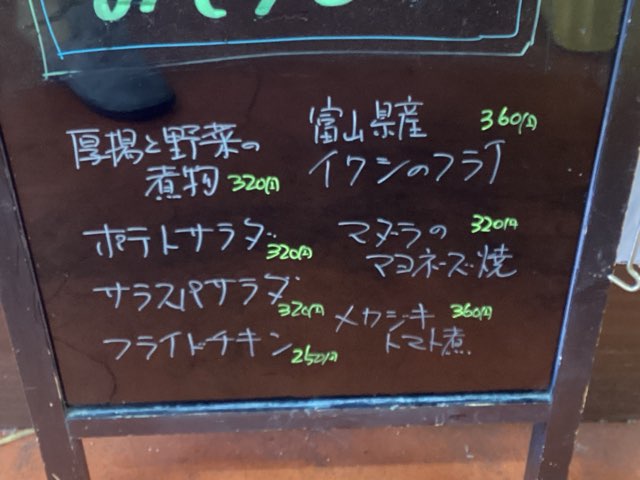 厚揚と野菜の
煮物 320円
ポテトサラダ 320円
サラスパサラダ 320円
フライドチキン 250円
富山県産 360円
イワシのフライ
マダラの 320円
マヨネーズ焼
メカジキ 360円
トマト煮